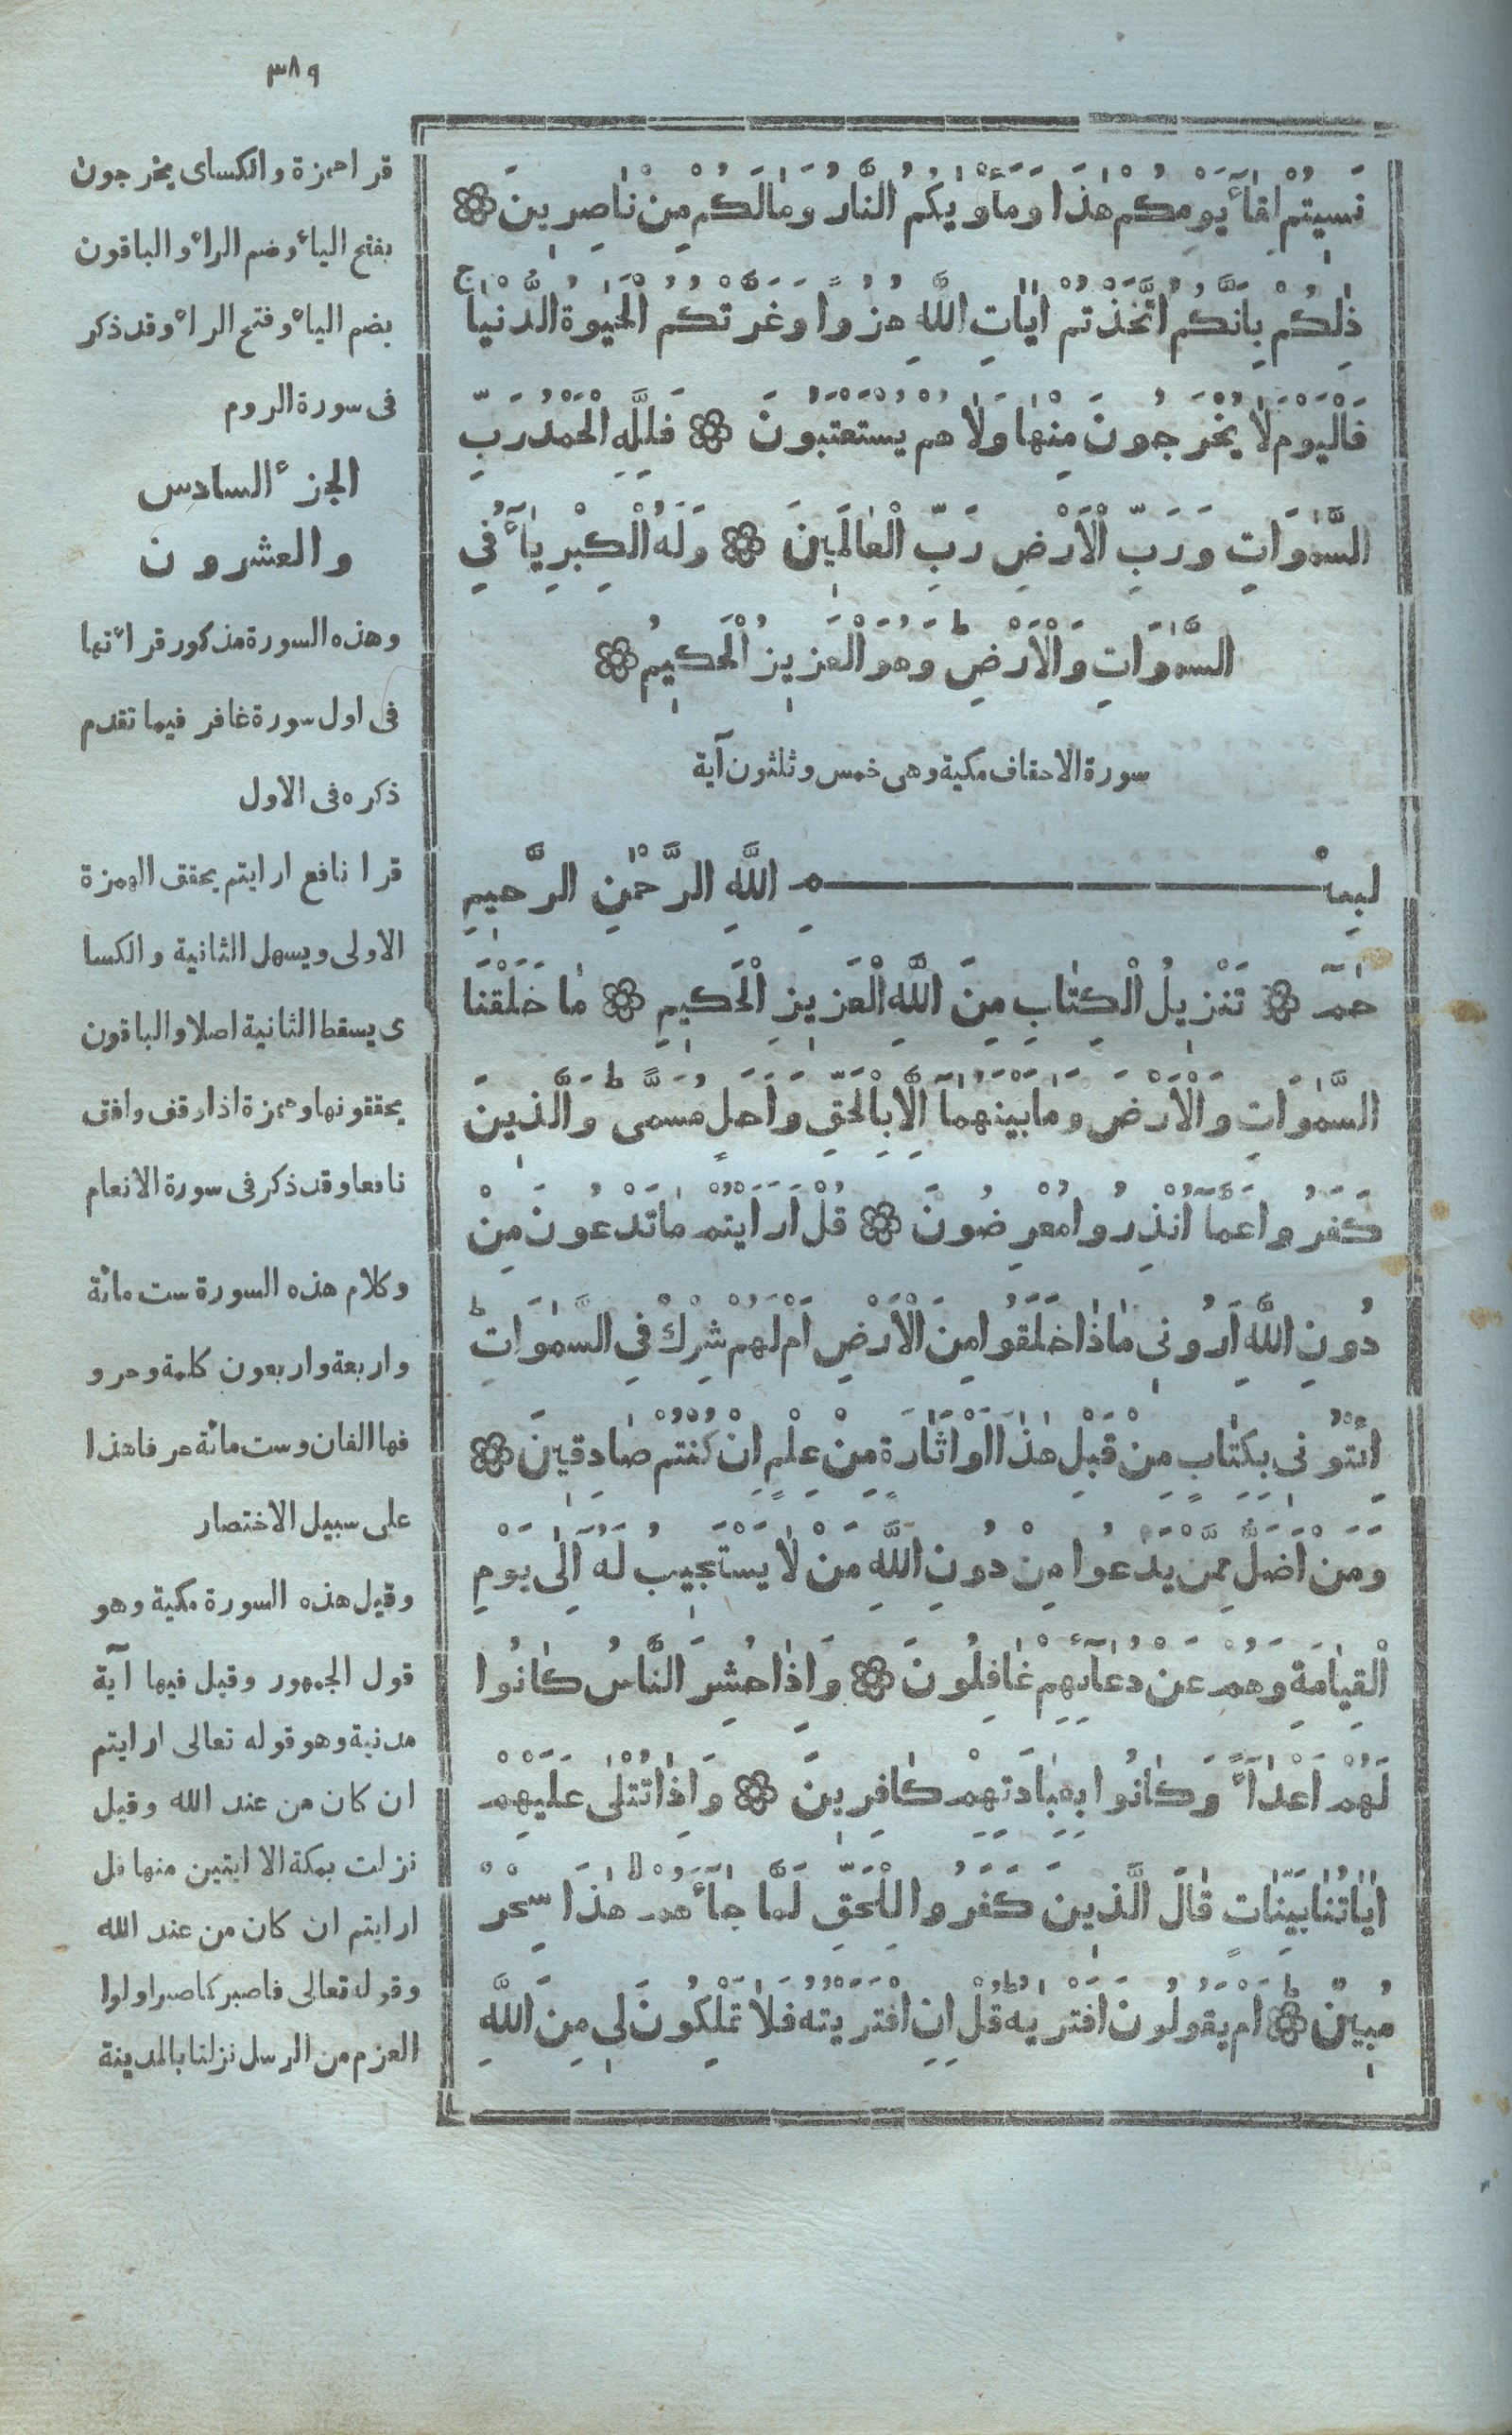 ٣٨٩
نَسِيتُمْ لِقَآءَ يَوْمِكُمْ هٰذَا وَمَأْوٰيكُمُ النَّارُ وَمَا لَكُمْ مِنْ نَاصِرِينَ
ذٰلِكُمْ بِاَنَّكُمُ اتَّخَذْتُمْ اٰيَاتِ اللَّهِ هُزُوًا وَغَرَّتْكُمُ الْحَيٰوةُ الدُّنْيَا ج
فَالْيَوْمَ لَا يُخْرَجُونَ مِنْهَا وَلَا هُمْ يُسْتَعْتَبُونَ فَلِلَّهِ الْحَمْدُ رَبِّ
السَّمٰوَاتِ وَرَبِّ الْاَرْضِ رَبِّ الْعَالَمِينَ وَلَهُ الْكِبْرِيَآءُ فِي
السَّمٰوَاتِ وَالْاَرْضِ ط وَهُوَ الْعَزِيزُ الْحَكِيمُ
سورة الاحقاف مكية وهى خمس وثلثون آية
بِسْمِ اللَّهِ الرَّحْمٰنِ الرَّحِيمِ
حٰمٓ تَنْزِيلُ الْكِتَابِ مِنَ اللَّهِ الْعَزِيزِ الْحَكِيمِ مَا خَلَقْنَا
السَّمٰوَاتِ وَالْاَرْضَ وَمَا بَيْنَهُمَآ اِلَّا بِالْحَقِّ وَاَجَلٍ مُسَمًّى ط وَالَّذِينَ
كَفَرُوا عَمَّآ اُنْذِرُوا مُعْرِضُونَ قُلْ اَرَاَيْتُمْ مَا تَدْعُونَ مِنْ
دُونِ اللَّهِ اَرُونِى مَاذَا خَلَقُوا مِنَ الْاَرْضِ اَمْ لَهُمْ شِرْكٌ فِى السَّمٰوَاتِ ط
اِئْتُونِى بِكِتَابٍ مِنْ قَبْلِ هٰذَا اَوْ اَثَارَةٍ مِنْ عِلْمٍ اِنْ كُنْتُمْ صَادِقِينَ
وَمَنْ اَضَلُّ مِمَّنْ يَدْعُوا مِنْ دُونِ اللَّهِ مَنْ لَا يَسْتَجِيبُ لَهُ اِلٰى يَوْمِ
الْقِيَامَةِ وَهُمْ عَنْ دُعَآئِهِمْ غَافِلُونَ وَاِذَا حُشِرَ النَّاسُ كَانُوا
لَهُمْ اَعْدَآءً وَكَانُوا بِعِبَادَتِهِمْ كَافِرِينَ وَاِذَا تُتْلٰى عَلَيْهِمْ
اٰيَاتُنَا بَيِّنَاتٍ قَالَ الَّذِينَ كَفَرُوا لِلْحَقِّ لَمَّا جَآءَهُمْ لا هٰذَا سِحْرٌ
مُبِينٌ ط اَمْ يَقُولُونَ افْتَرٰيهُ ط قُلْ اِنِ افْتَرَيْتُهُ فَلَا تَمْلِكُونَ لِى مِنَ اللَّهِ
قرا حمزة والكساى يخرجون
بفتح الياء وضم الراء والباقون
بضم الياء وفتح الراء وقد ذكر
فى سورة الروم
الجزء السادس
والعشرون
وهذه السورة مذكور قراءتها
فى اول سورة غافر فيما تقدم
ذكره فى الاول
قرا نافع ارايتم يحقق الهمزة
الاولى ويسهل الثانية والكسا
ى يسقط الثانية اصلا والباقون
يحققونها وحمزة اذا رقف وافق
نافعا وقد ذكر فى سورة الانعام
وكلام هذه السورة ست مائة
واربعة واربعون كلمة وحرو
فها الفان وست مائة حرفا هذا
على سبيل الاختصار
وقيل هذه السورة مكية وهو
قول الجمهور وقيل فيها آية
مدنية وهو قوله تعالى ارايتم
ان كان من عند الله وقيل
نزلت بمكة الا ايتين منها قل
ارايتم ان كان من عند الله
وقوله تعالى فاصبر كما صبر اولوا
العزم من الرسل نزلتا بالمدينة